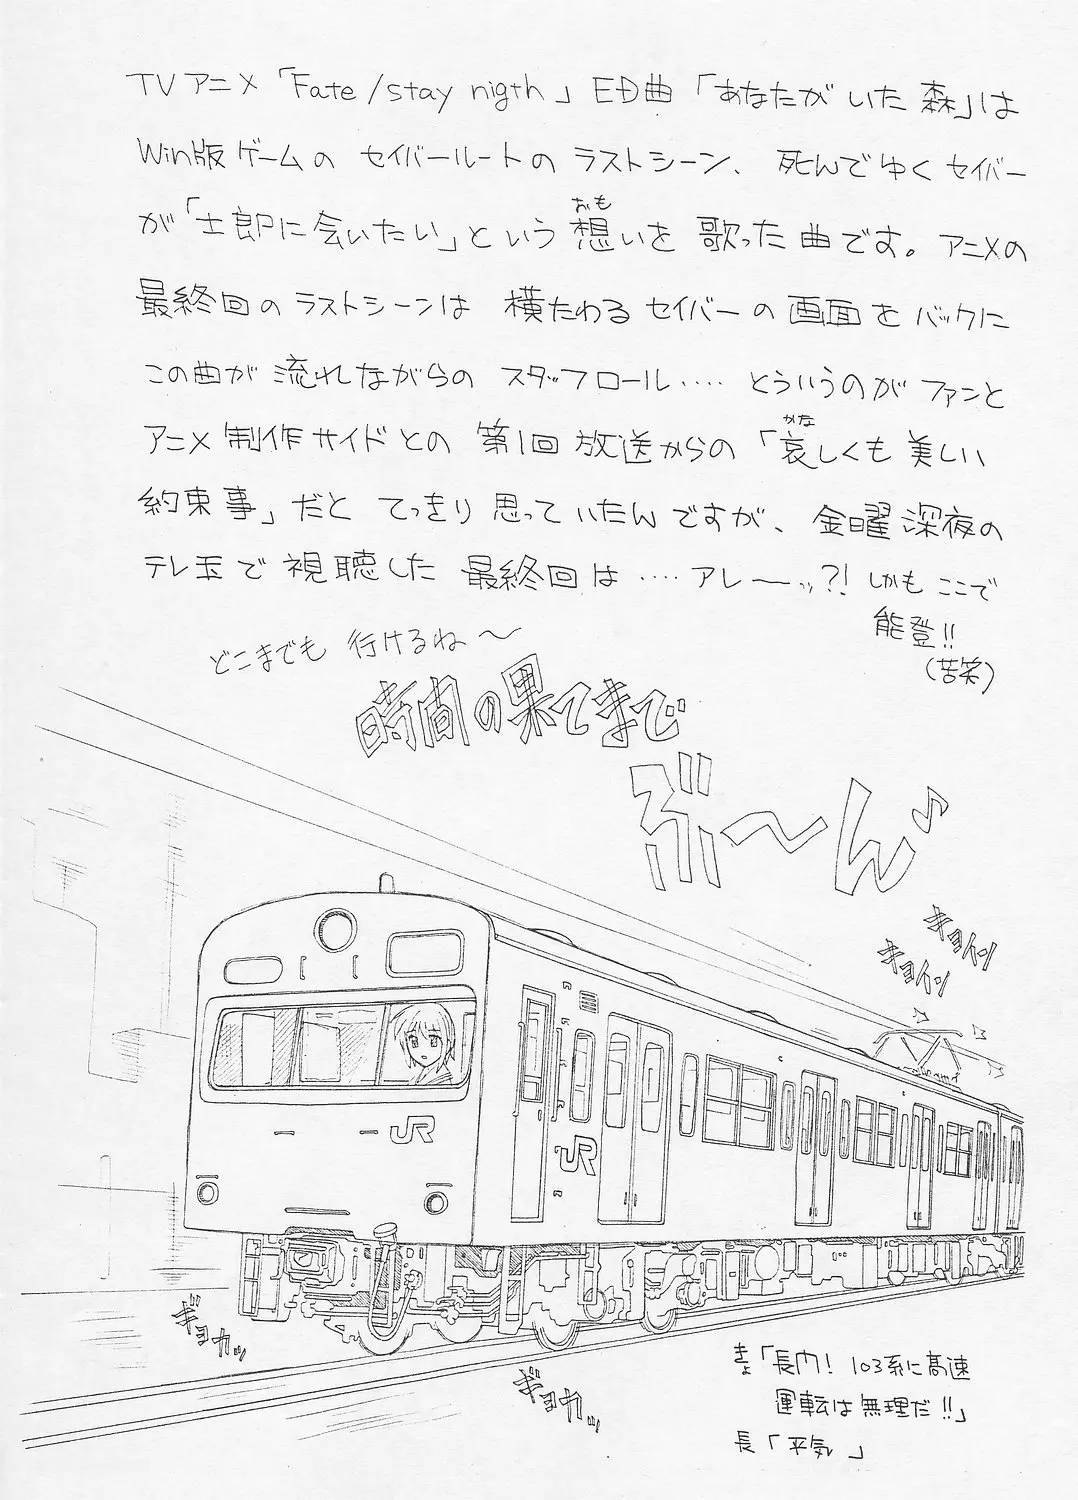 TVアニメ「Fate/stay nigth」ED曲「あなたがいた森」は
Win版ゲームのセイバールートのラストシーン、死んでゆくセイバー
おも
が「士郎に会いたい」という想いを歌った曲です。アニメの
最終回のラストシーンは横たわるセイバーの画面をバックに
この曲が流れながらのスタッフロール‥‥というのがファンと
かな
アニメ制作サイドとの第1回放送からの「哀しくも美しい
約束事」だとてっきり思っていたんですが、金曜深夜の
テレ玉で視聴した最終回は‥‥アレーッ?! しかもここで
能登!!
(苦笑)
どこまでも行けるね〜
時間の果てまで
ぶ〜ん♪
ギョイン
ギョイン
JR
JR
ギョカッ
ギョカッ
きょ「長門! 103系に高速
運転は無理だ!!」
長「平気」